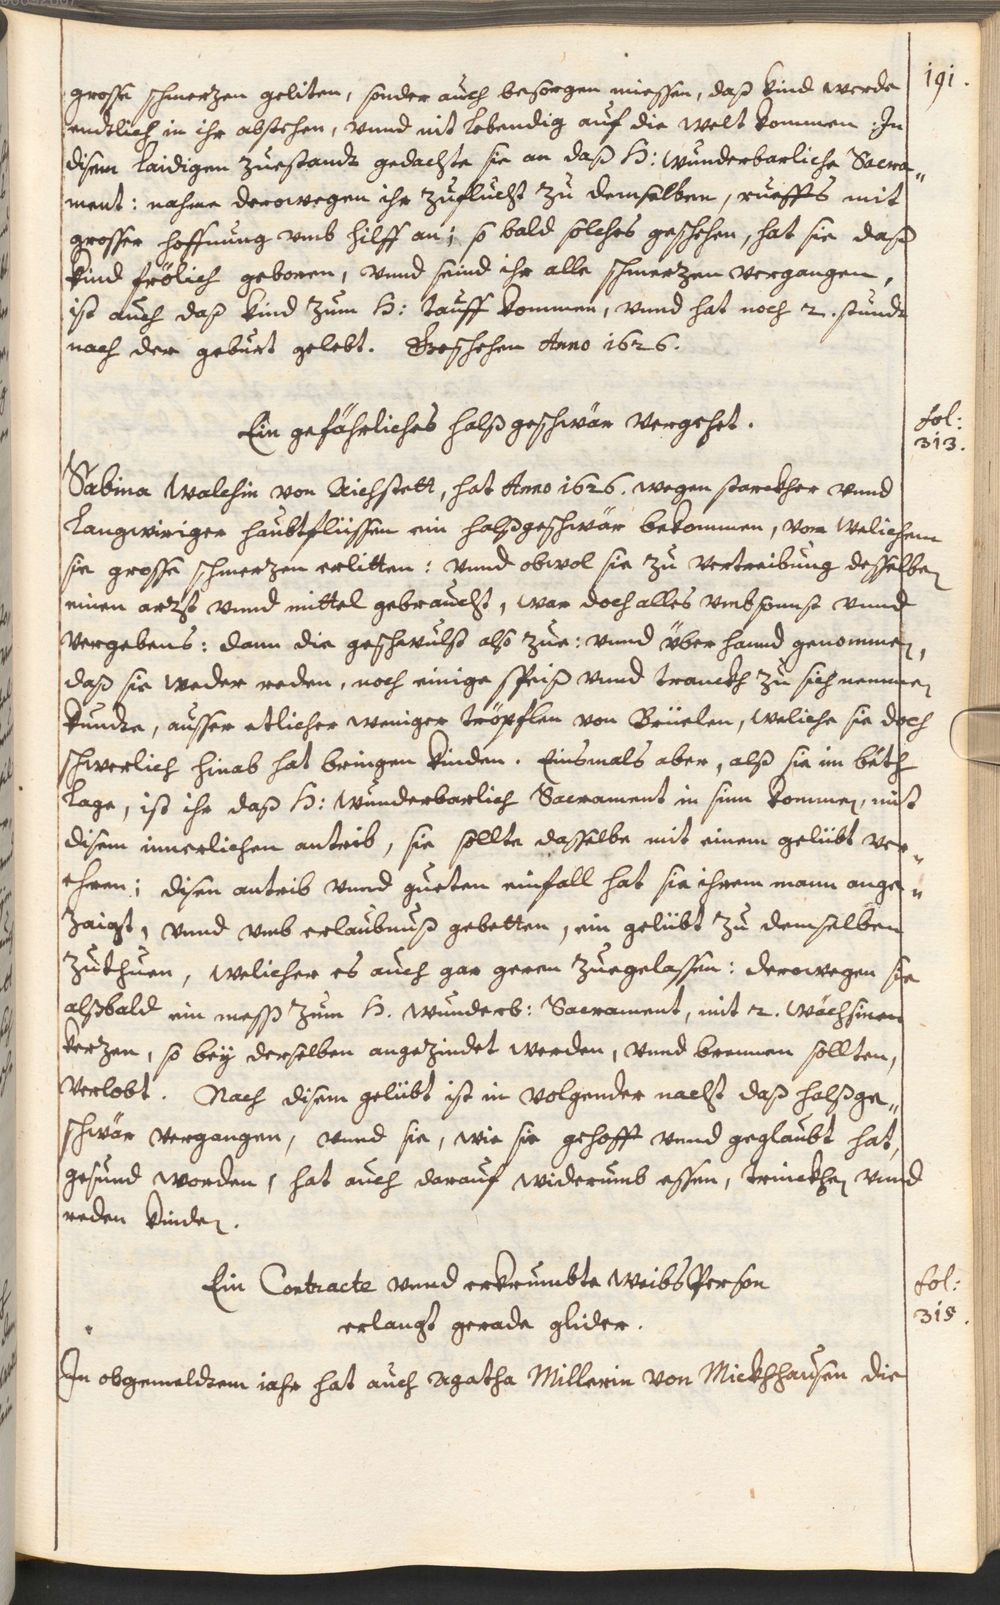 191.
grosse schmerzen geliten, sonder auch besorgen miessen, daß kind werde
endtlich in ihr abstehen, vnnd nit lebendig auf die welt kommen. In
disem laidigen zuestandt gedachte sie an daß H: Wunderbarliche Sacra„
ment: nahme derowegen ihr zuflucht zu demselben, ruefftt mit
grosser hoffnung vmb hilff an; so bald solches geschehen, hat sie daß
kind frölich geboren, vnnd seind ihr alle schmerzen vergangen,
ist auch daß kind zum H: tauff kommen, vnnd hat noch 2. stundt
nach der geburt gelebt. Geschehen Anno 1626.
Ein gefährliches halßgeschwär vergehet.
fol:
313.
Sabina Walchin von Aichstett, hat Anno 1626. wegen starckher vnnd
langwiriger haubtflüssen ein halßgeschwär bekommen, von welichem
sie grosse schmerzen erlitten: vnnd obwol sie zu vertreibung desselben
einen arzt vnnd mittel gebraucht, war doch alles vmbsonst vnnd
vergebens: dann die geschwulst also zue: vnnd überhannd genommen,
daß sie weder reden, noch einige speiß vnnd tranckh zu sich nemmen
kundte, ausser etlicher weniger tröpflen von Brüelen, weliche sie doch
schwerlich hinab hat bringen kinden. Einsmals aber, alß sie im béth
lage, ist ihr daß H: Wunderbarlich Sacrament in sinn kommen, mit
disem innerlichen antrib, sie sollte dasselbe mit einem gelübt ver„
ehren; disen antrib vnnd gueten einfall hat sie ihrem mann ange„
zaigt, vnnd vmb erlaubnuß gebetten, ein gelübt zu demselben
zuthuen, welicher es auch gar geren zuegelassen: derowegen sie
alßbald ein mess zum H. Wunderb: Sacrament, mit 2. wächsinen
kerzen, so bey derselben angezindet werden, vnnd brennen sollten,
verlobt. Nach disem gelübt ist in volgender nacht daß halßge„
schwär vergangen, vnnd sie, wie sie gehofft vnnd geglaubt hat,
gesund worden, hat auch darauf widerumb essen, trinckhen vnnd
reden kinden.
Ein Contracte vnnd erkrumbte Weibs Person
erlangt gerade glider.
fol:
318.
In obgemeldtem iahr hat auch Agatha Millerin von Mickhhausen die